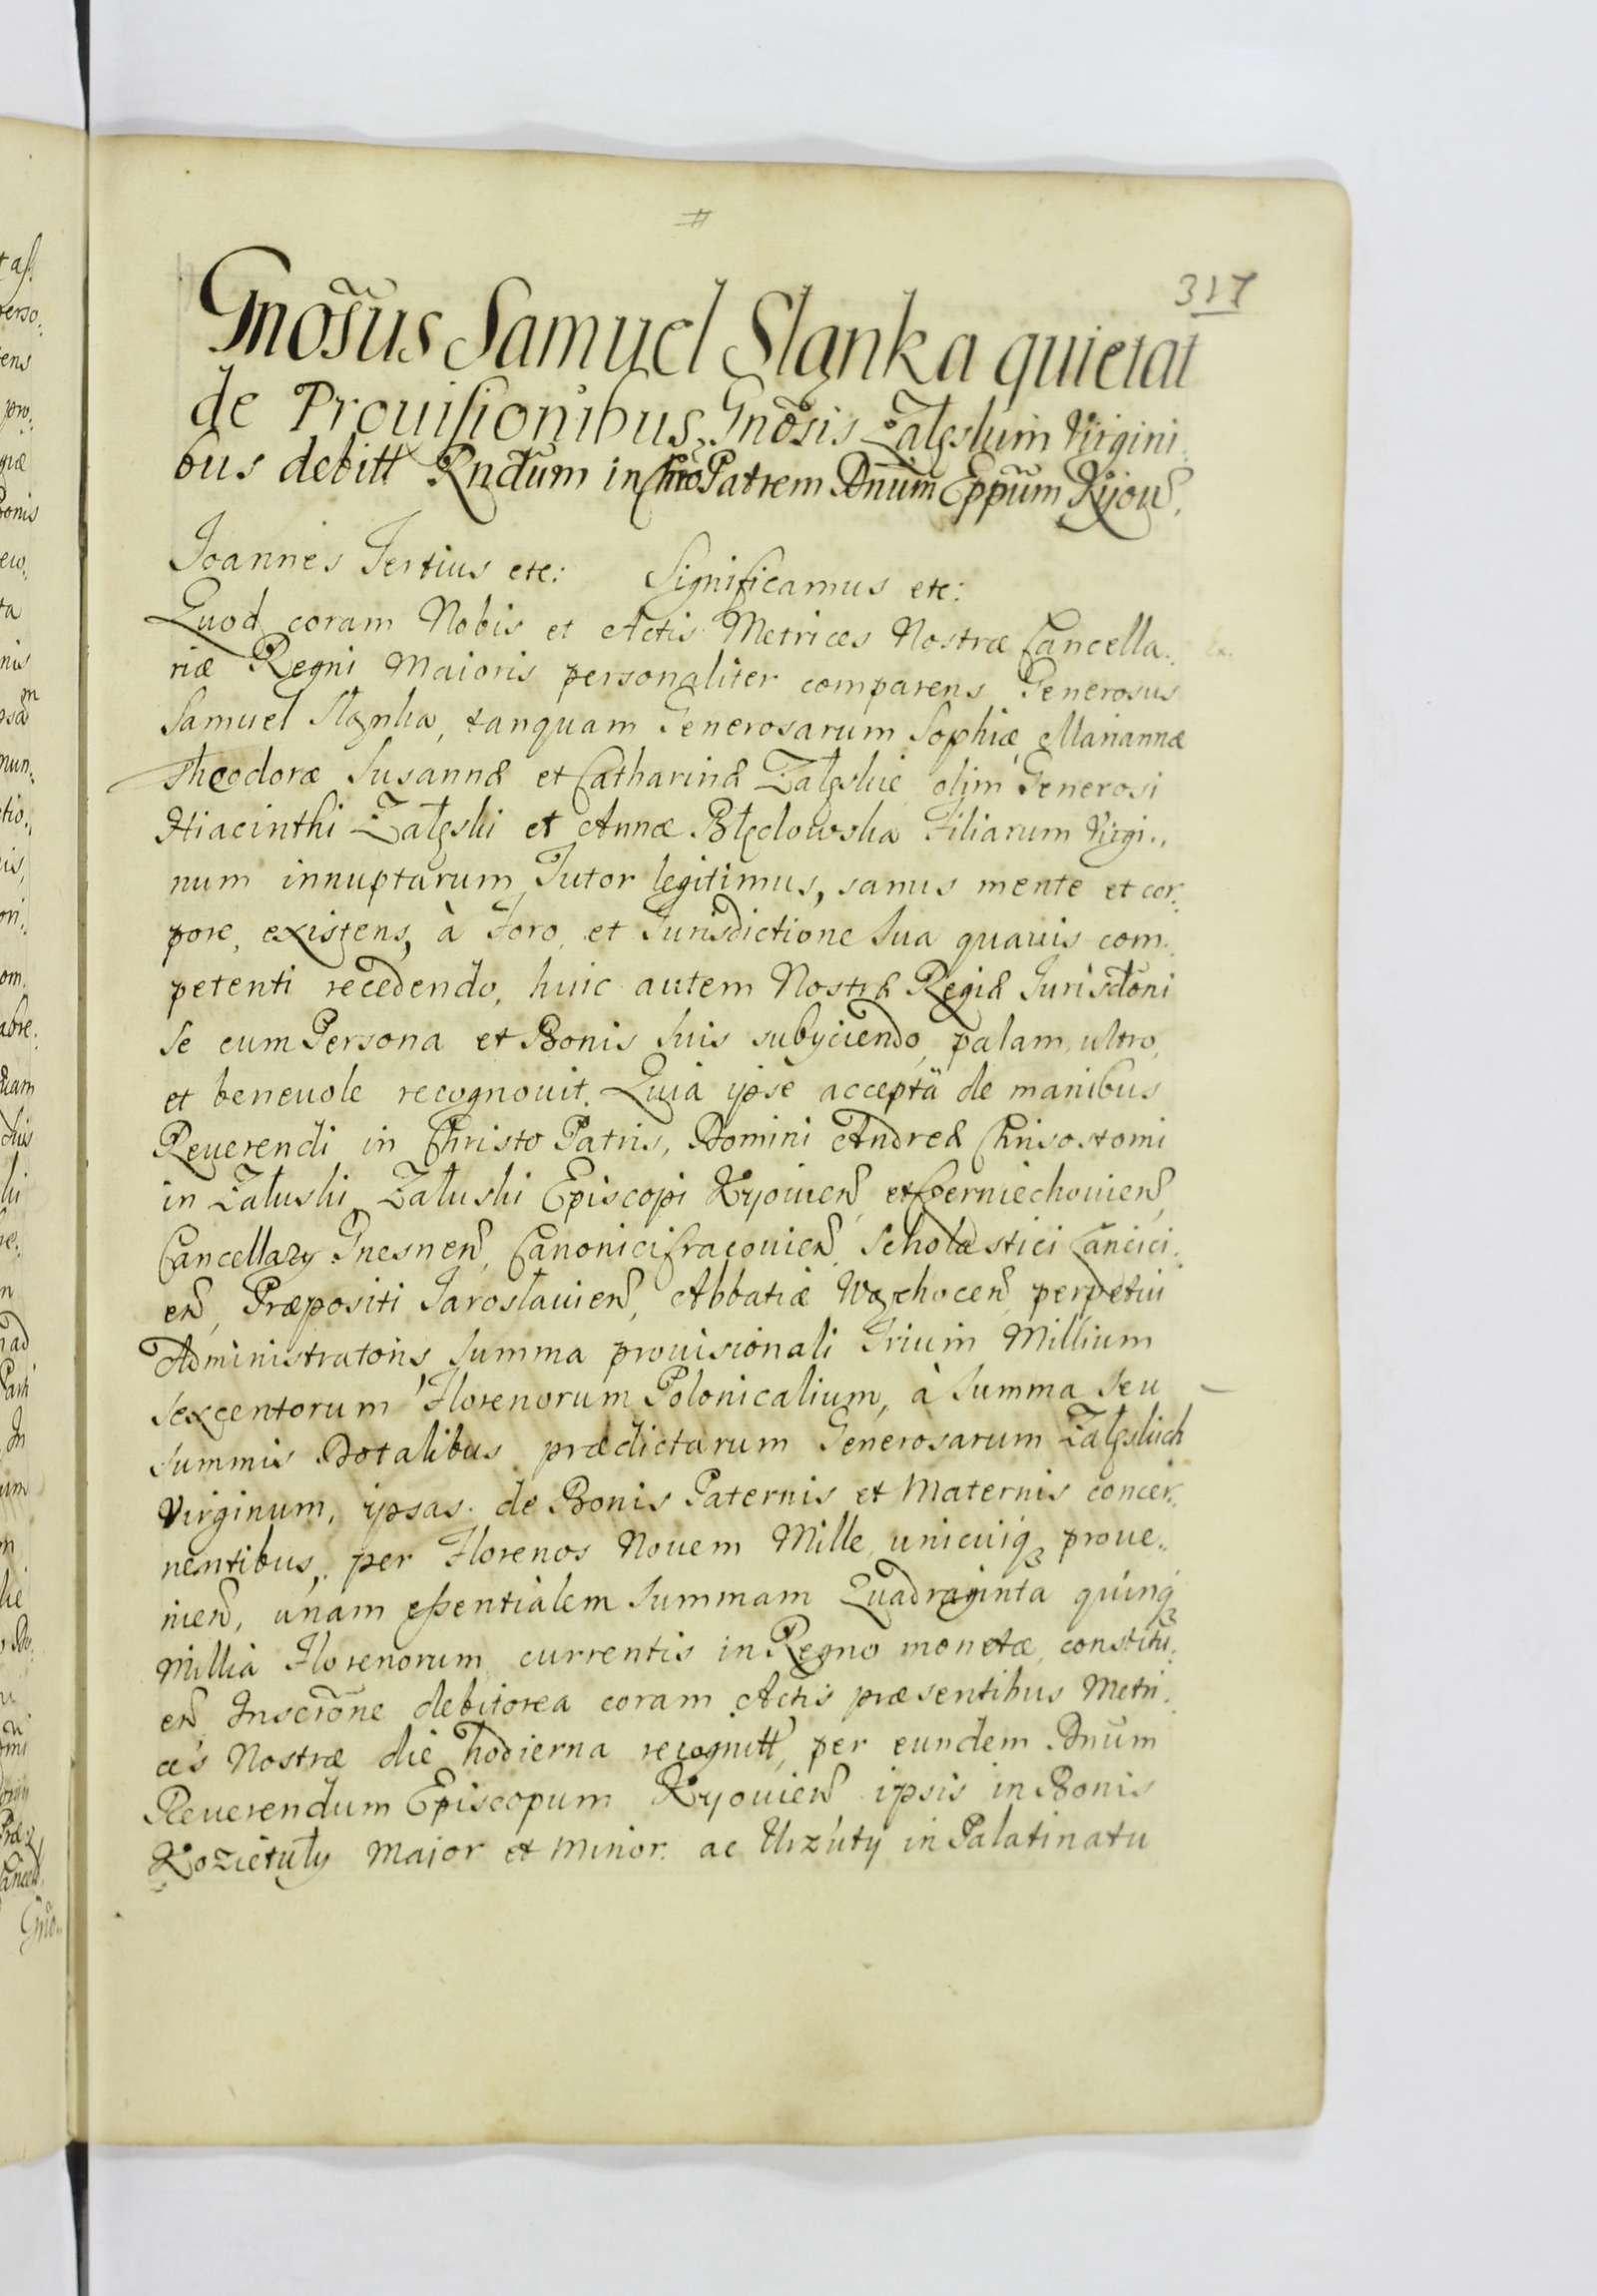 317
Gnosus Samuel Slanka quietat
de Prouisionibus Gnosis Załęskim Virgini
bus debitt Rndum in Chro Patrem Dnum Eppum Kijou.
Joannes Tertius etc: Significamus etc:
Quod coram Nobis et Actis Metrices Nostræ Cancella..
riæ Regni Maioris personaliter comparens Generosus
Samuel Slanka, tanquam Generosarum Sophiæ, Mariannæ
Theodoræ Susannæ et Catharinæ Załęskie olim Generosi
Hiacinthi Załęski et Annæ Błędowska Filiarum Virgi..
num innuptarum Tutor legitimus, sanus mente et cor:
pore, existens, à Foro et Jurisdictione Sua quauis com:
petenti recedendo, huic autem Nostræ Regiæ Jurisdtoni
Se cum Persona et Bonis Suis subyciendo, palam, ultro,
et beneuole recognouit. Quia ipse acceptâ de manibus
Reuerendi in Christo Patris, Domini Andreæ Chrisostomi
in Załuski Załuski Episcopi Kyouien, et Czerniechouien,
Cancellary Gnesnen, Canonici Cracouien, Scholastici Lancici:
en, Præpositi Jaroslauien, Abbatiæ Wąchocen perpetui
Administratoris, Summa prouisionali Trium Millium
Sexcentorum Florenorum Polonicalium, à Summa Seu
Summis Dotalibus prædictarum Generosarum Załęskich
Virginum, ipsas de Bonis Paternis et Maternis concer:
nentibus, per Florenos Nouem Mille unicuiq; proue..
nien, unam essentialem Summam Quadraginta quinq;
Millia Florenorum currentis in Regno monetæ constitu:
en Inscrõne debitorea coram Actis præsentibus Metri:
ces Nostræ die hodierna recognitt, per eundem Dnum
Reuerendum Episcopum Kyouien ipsis in Bonis
Kozietuły Major et Minor. ac Urzuty in Palatinatu